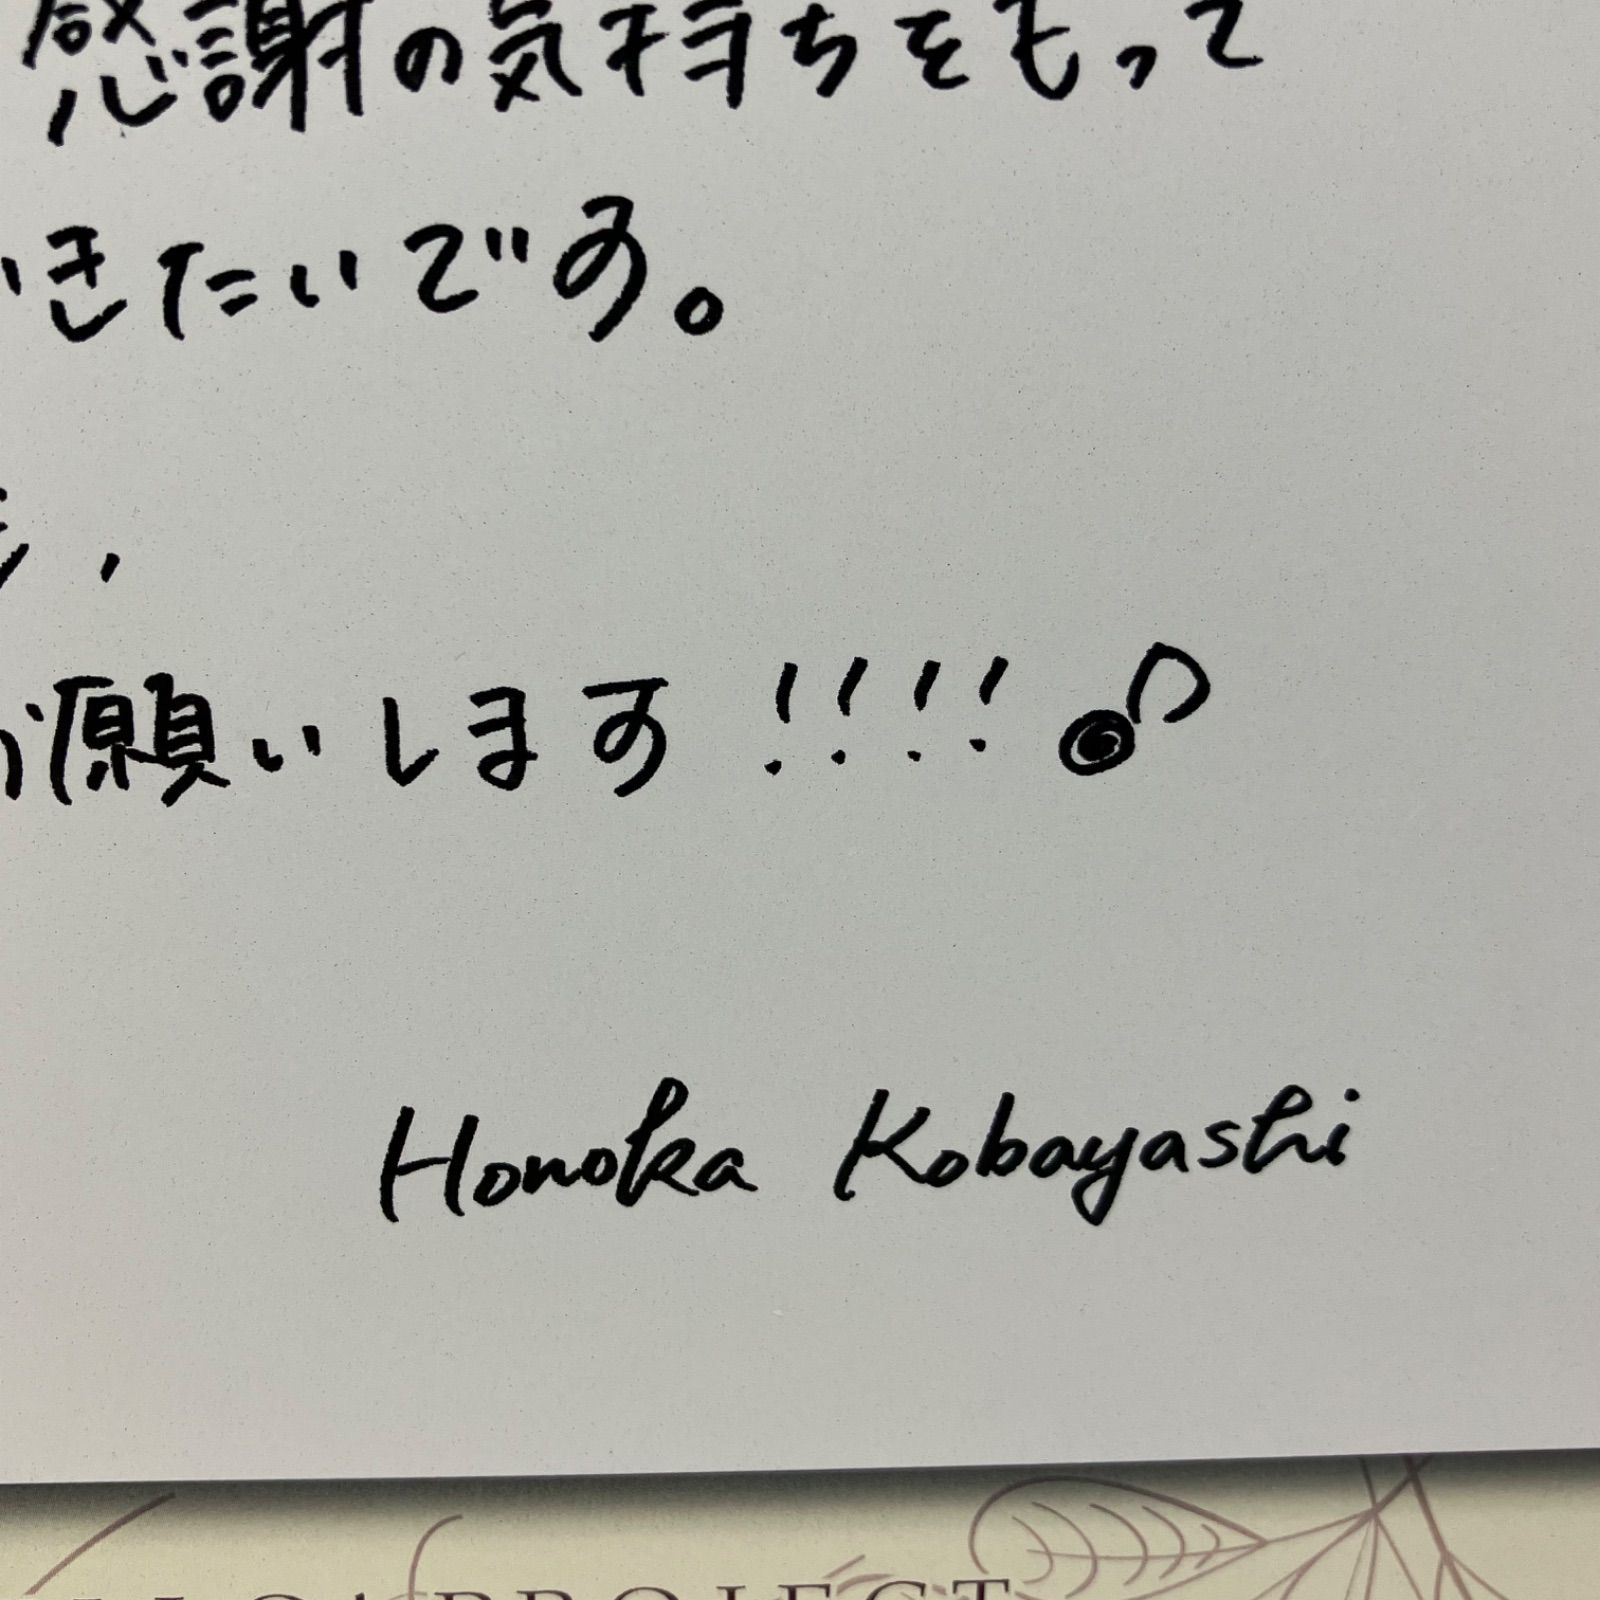 感謝の気持ちをもって
いきたいです。
、
お願いします!!!!♪
Honoka Kobayashi
PROJECT